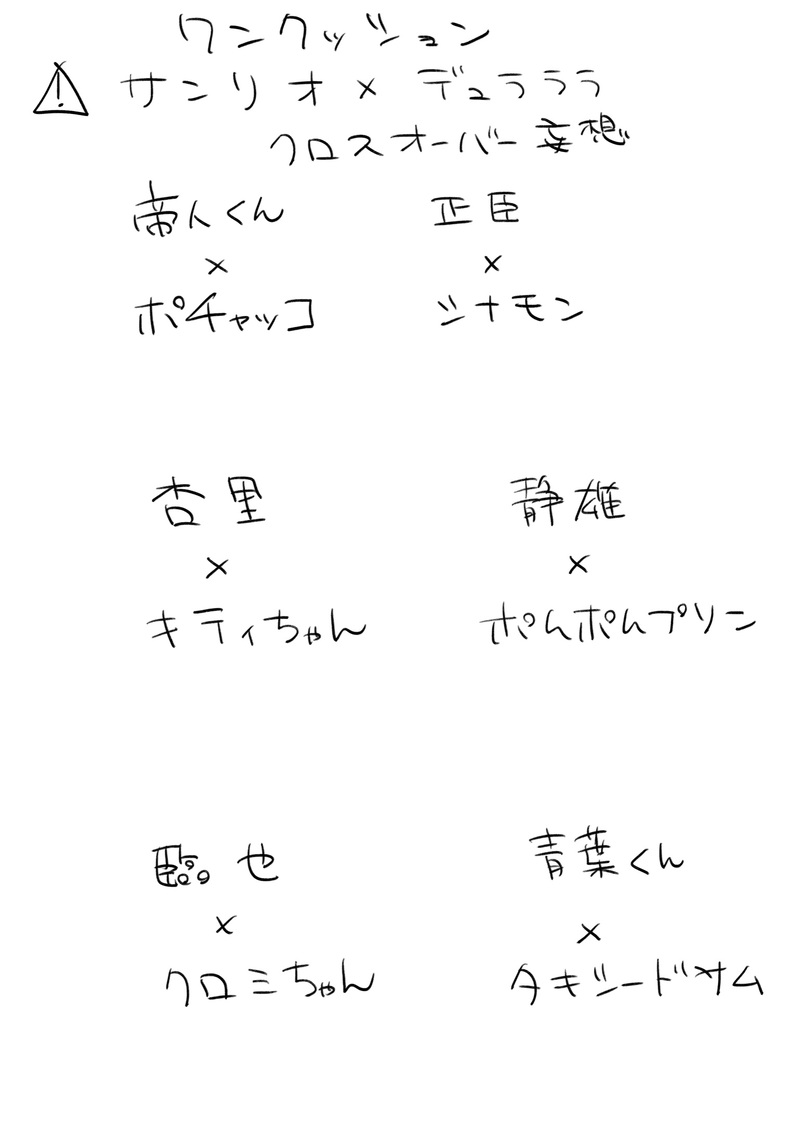 ワンクッション
⚠ サンリオ×デュラララ
クロスオーバー妄想
帝人くん
×
ポチャッコ
正臣
×
シナモン
杏里
×
キティちゃん
静雄
×
ポムポムプリン
臨也
×
クロミちゃん
青葉くん
×
タキシードサム